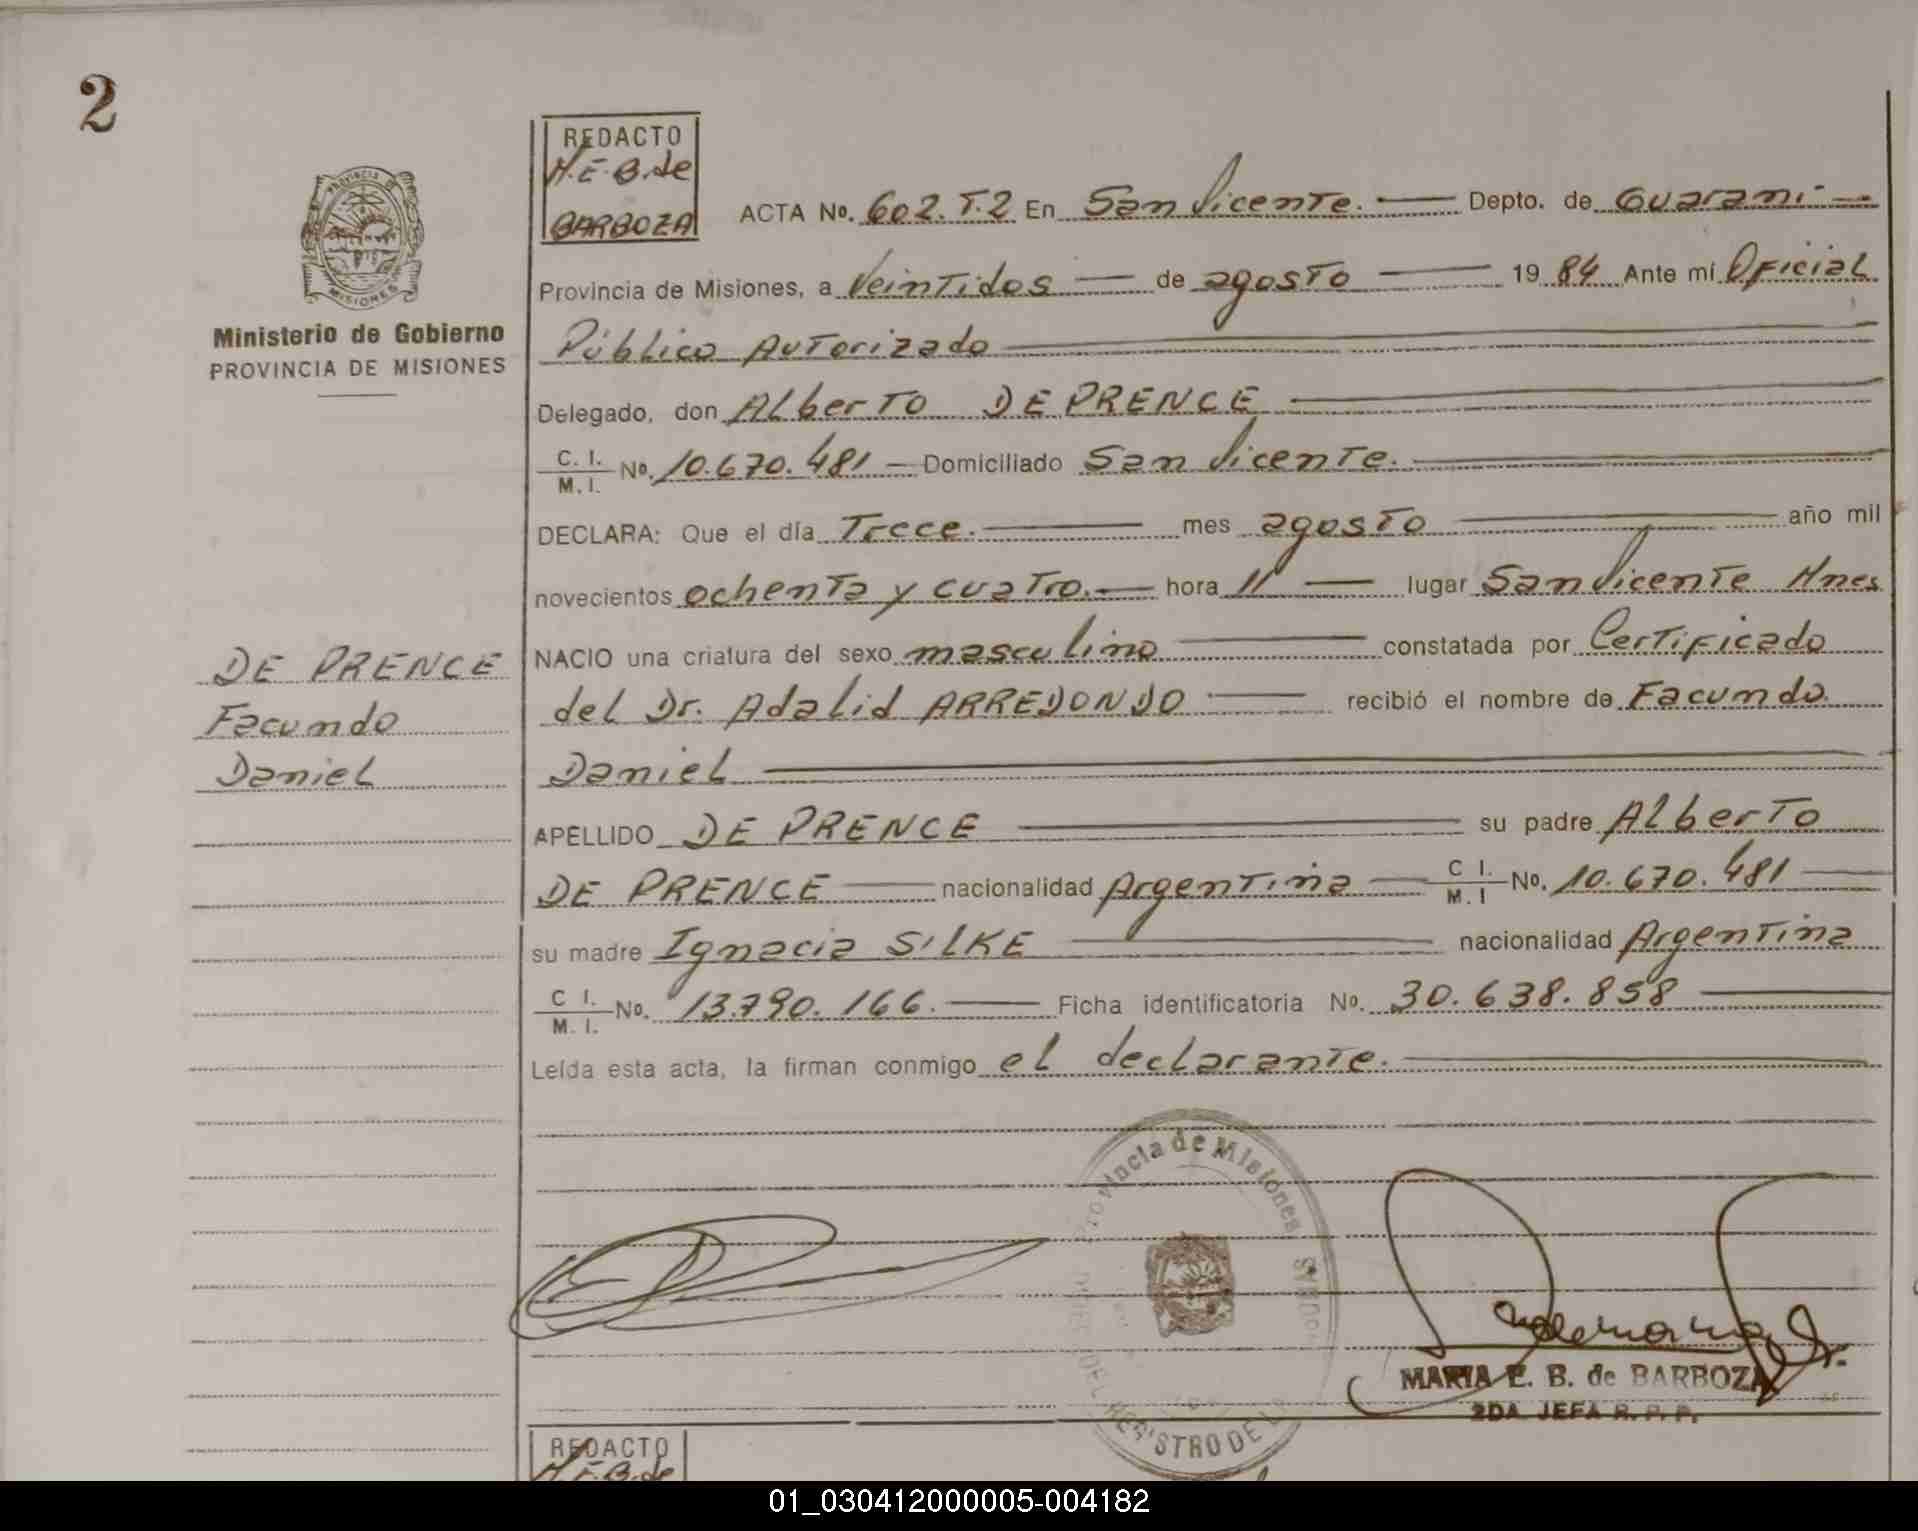 2
REDACTO
M.E.B. de
BARBOZA
PROVINCIA DE
MISIONES
Ministerio de Gobierno
PROVINCIA DE MISIONES
ACTA No. 602.T.2 En San Vicente. Depto. de Guaraní
Provincia de Misiones, a Veintidos de agosto 1984 Ante mí Oficial
Público Autorizado
Delegado, don Alberto DE PRENCE
C. I. / M. I. No. 10.670.481 Domiciliado San Vicente.
DECLARA: Que el día Trece. mes agosto año mil
novecientos ochenta y cuatro. hora 11 lugar San Vicente Mnes
NACIO una criatura del sexo masculino constatada por Certificado
del Dr. Adalid ARREDONDO recibió el nombre de Facundo
Daniel
APELLIDO DE PRENCE su padre Alberto
DE PRENCE nacionalidad Argentina C I. / M. I No. 10.670.481
su madre Ignacia SILKE nacionalidad Argentina
C I. / M. I. No. 13.790.166. Ficha identificatoria No. 30.638.858
Leída esta acta, la firman conmigo el declarante.
DE PRENCE
Facundo
Daniel
Provincia de Misiones
REGISTRO DE L
MARIA E. B. de BARBOZA
2DA JEFA R. P. P.
REDACTO
M.E.B. de
01_030412000005-004182